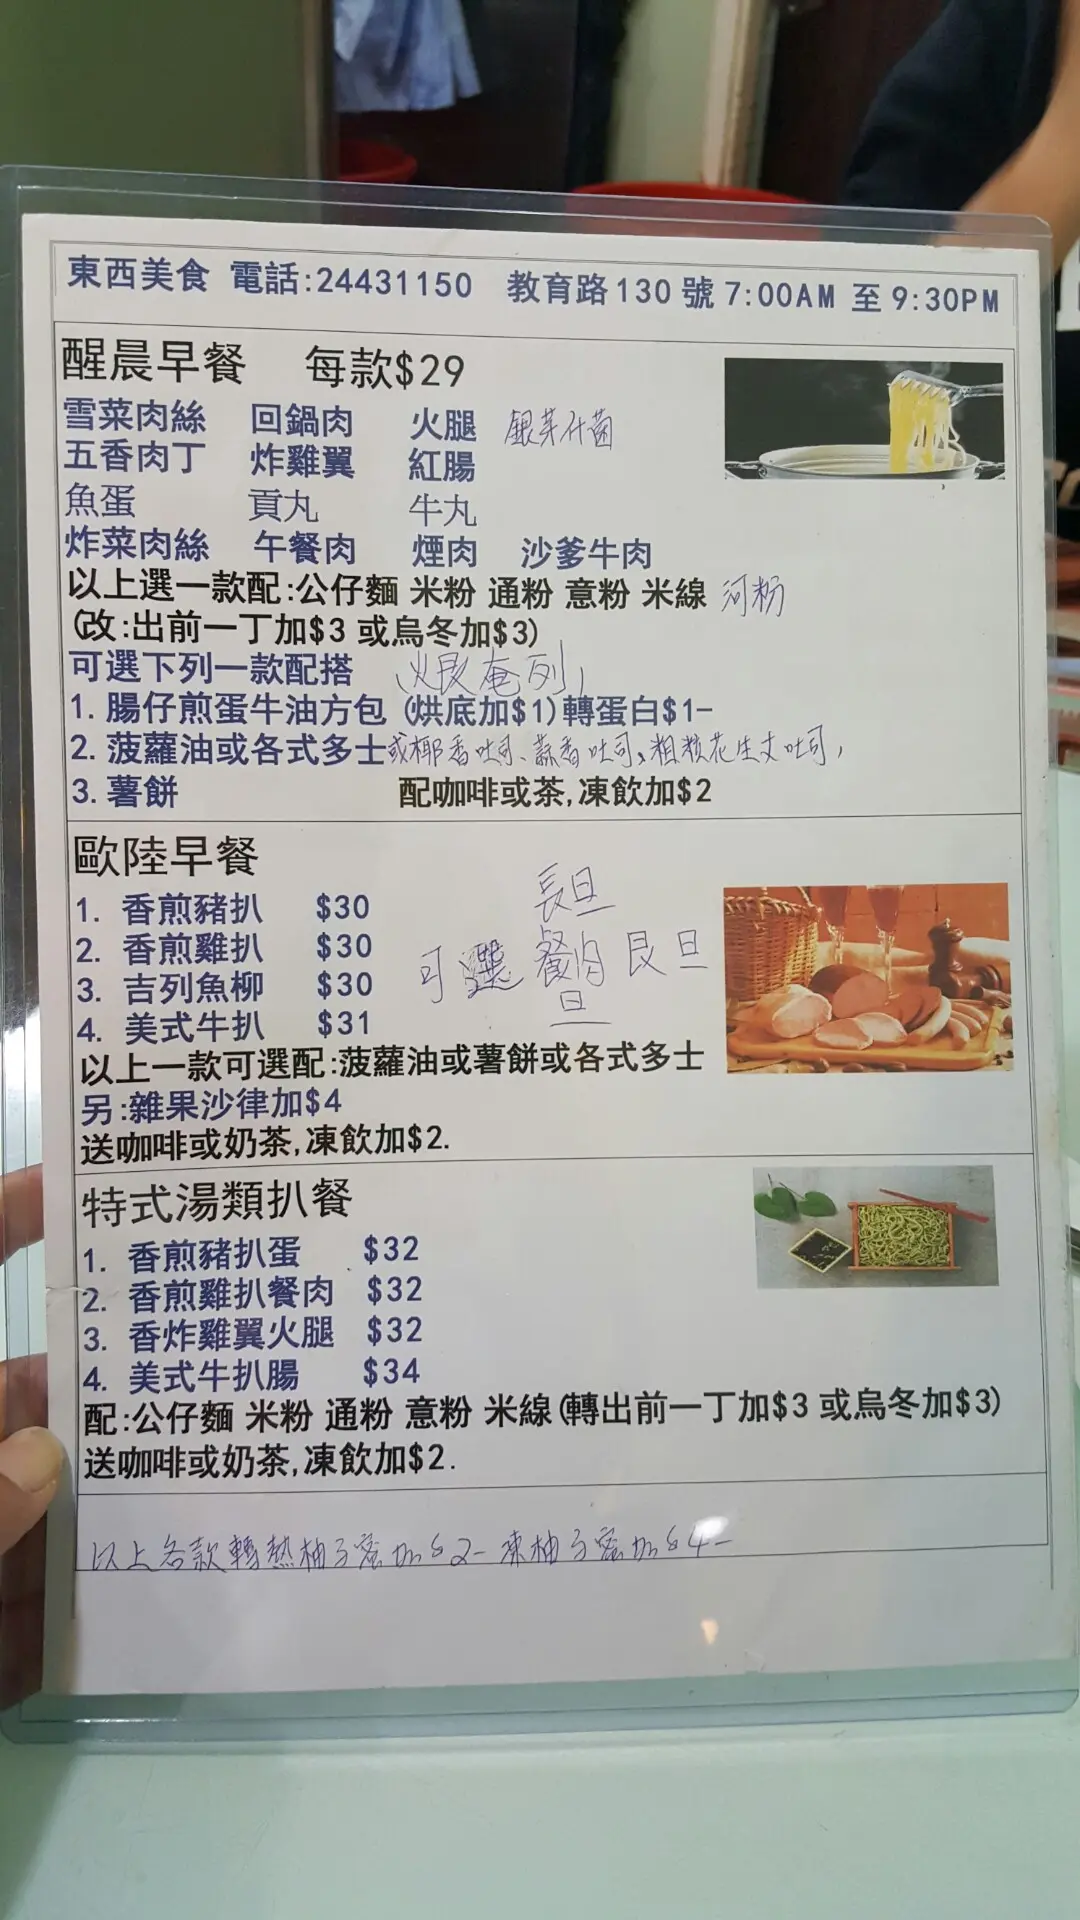 東西美食 電話:24431150 教育路130號 7:00AM 至 9:30PM
醒晨早餐 每款$29
雪菜肉絲 回鍋肉 火腿 銀芽什菌
五香肉丁 炸雞翼 紅腸
魚蛋 貢丸 牛丸
炸菜肉絲 午餐肉 煙肉 沙爹牛肉
以上選一款配:公仔麵 米粉 通粉 意粉 米線 河粉
(改:出前一丁加$3 或烏冬加$3)
可選下列一款配搭 奄列
1. 腸仔煎蛋牛油方包 (烘底加$1)轉蛋白$1-
2. 菠蘿油或各式多士或椰香吐司、蒜香吐司、粗粒花生丈吐司,
3. 薯餅 配咖啡或茶,凍飲加$2
歐陸早餐
1. 香煎豬扒 $30
2. 香煎雞扒 $30
3. 吉列魚柳 $30
4. 美式牛扒 $31
長旦
可選 餐肉旦 艮旦
以上一款可選配:菠蘿油或薯餅或各式多士
另:雜果沙律加$4
送咖啡或奶茶,凍飲加$2.
特式湯類扒餐
1. 香煎豬扒蛋 $32
2. 香煎雞扒餐肉 $32
3. 香炸雞翼火腿 $32
4. 美式牛扒腸 $34
配:公仔麵 米粉 通粉 意粉 米線(轉出前一丁加$3 或烏冬加$3)
送咖啡或奶茶,凍飲加$2.
以上各款轉熱柚子蜜加$2- 凍柚子蜜加$4-